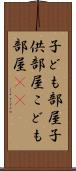 子ども部屋子
供部屋こども
部屋